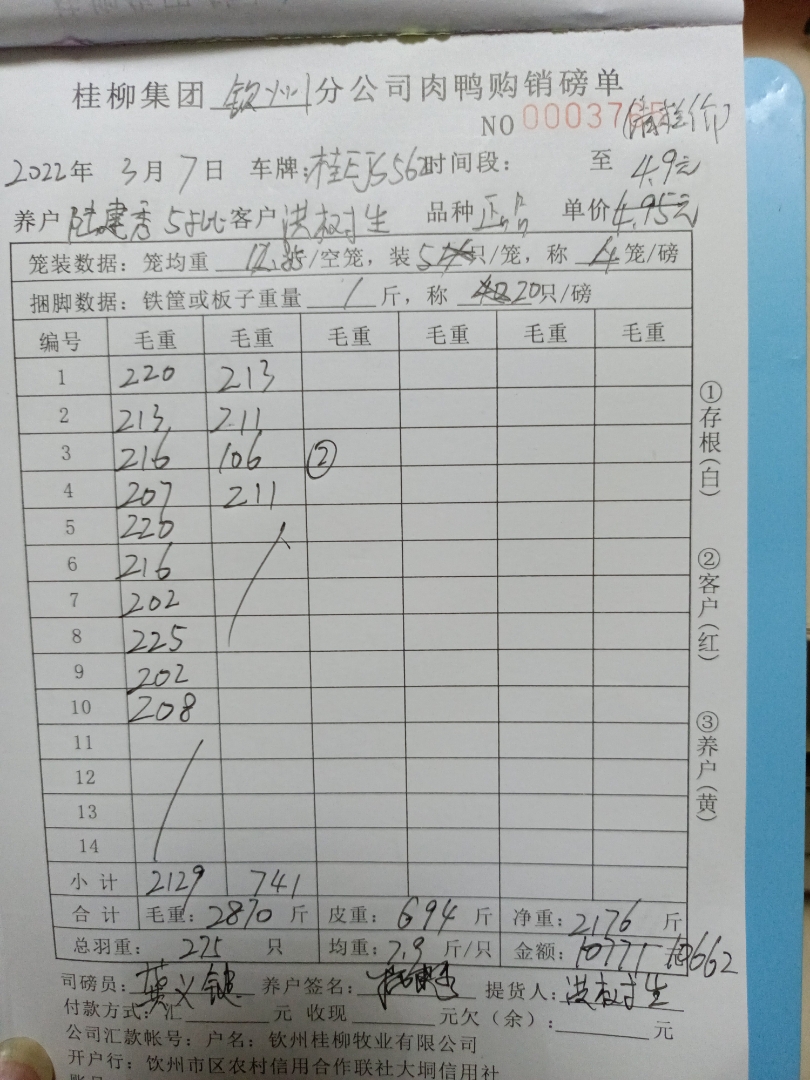 桂柳集团 钦州 分公司肉鸭购销磅单
NO 0003765
结控价
2022年 3月 7日 车牌:桂EJS562 时间段: 至 4.9元
养户 陆建秀 客户 洪树生 品种 正品 单价 4.95元
笼装数据: 笼均重 12.35/空笼, 装 5只/笼, 称 4笼/磅
捆脚数据: 铁筐或板子重量 1 斤, 称 20只/磅
编号 毛重 毛重 毛重 毛重 毛重 毛重
1 220 213
2 213 211
3 216 106 ②
4 207 211
5 220
6 216
7 202
8 225
9 202
10 208
11
12
13
14
小计 2129 741
合计 毛重: 2870 斤 皮重: 694 斤 净重: 2176 斤
总羽重: 275 只 均重: 7.9 斤/只 金额: 10771 10662
司磅员: 莫义键 养户签名: 提货人: 洪树生
付款方式: 汇 元 收现 元欠(余): 元
公司汇款帐号: 户名: 钦州桂柳牧业有限公司
开户行: 钦州市区农村信用合作联社大垌信用社
①存根(白)
②客户(红)
③养户(黄)